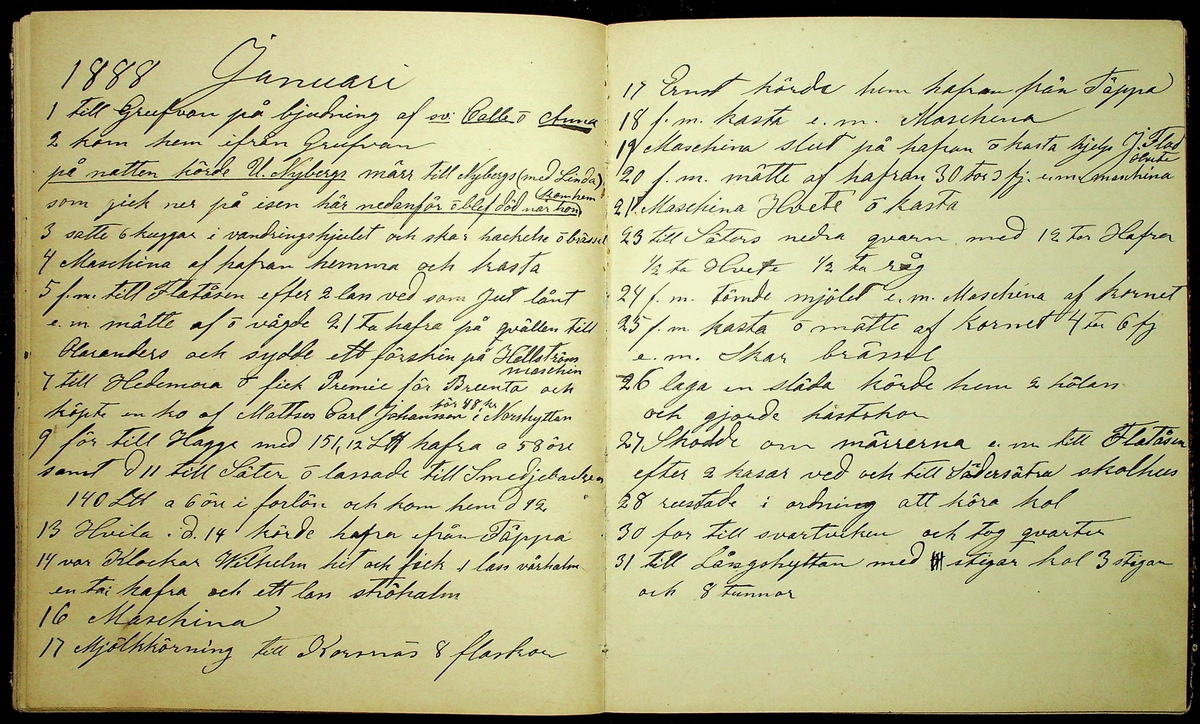 1888 Januari
1 till Grufvan på bjudning af sv: Calle ō Anna
2 kom hem ifrån Grufvan
på natten körde U. Nybergs märr till Nybergs (med Linda)
som gick ner på isen här nedanför ō blef död när hon kom hem
3 satte 6 kuggar i vandringshjulet och skar hackelse ō brässel
4 Maschina af hafran hemma och kasta
5 f.m. till Flatåsen efter 2 lass ved som Jut lånt
e.m mätte af ō vägde 21 ta hafra på qvällen till
Alexanders och sydde ett förskin på Hellströms
maschin
7 till Hedemora ō fick Premie för Brunta och
köpte en ko af Mattsos Carl Johansson i Norshyttan
för 48 kr
9 för till Hagge med 151,12 LH hafra a 58 öre
samt d 11 till Säter ō lassade till Smedjebacken
140 LH a 6 öre i forlön och kom hem d 12
13 Hvila . d. 14 körde hafra från Täppa
14 var Klockar Wilhelm hit och fick 1 lass vårhalm
en ta: hafra och ett lass ströhalm
16 Maschina
17 Mjölkkörning till Korsnäs 8 flaskor
17 Ernst körde hem hafran från Täppa
18 f. m. kasta e. m. Maschina
19 Maschina slut på hafran ō kasta hjelp J. Flod
20 f. m. mätte af hafran 30 tor 3 fj. e.m. maschina
Hvete
21 Maschina Hvete ō kasta
23 till Säters nedra qvarn med 12 tor Hafra
1/2 ta Hvete 1/2 ta råg
24 f. m. tömde mjölet e. m. Maschina af kornet
25 f. m kasta ō mätte af kornet 4 tor 6 fj
e. m. Skar brässel
26 laga en släda körde hem 2 hölass
och gjorde hästskor
27 Skodde om märrerna e. m till Flatåsen
efter 2 kasar ved och till Södersätra skolhus
28 rustade i ordning att köra kol
30 for till svartviken och tog qvarter
31 till Långshyttan med stigar kol 3 stigar
och 8 tunnor